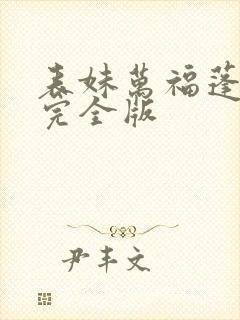 表妹萬福蓬
完全版
尹丰文